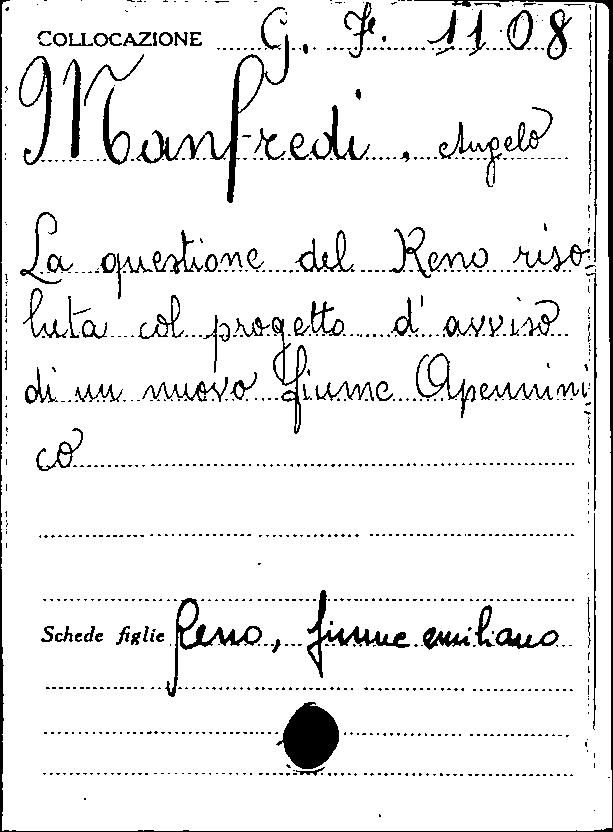 COLLOCAZIONE G. F. 1108
Manfredi, Angelo
La questione del Reno riso
luta col progetto d'avviso
di un nuovo fiume Apennini
co
Schede figlie Reno, fiume emiliano